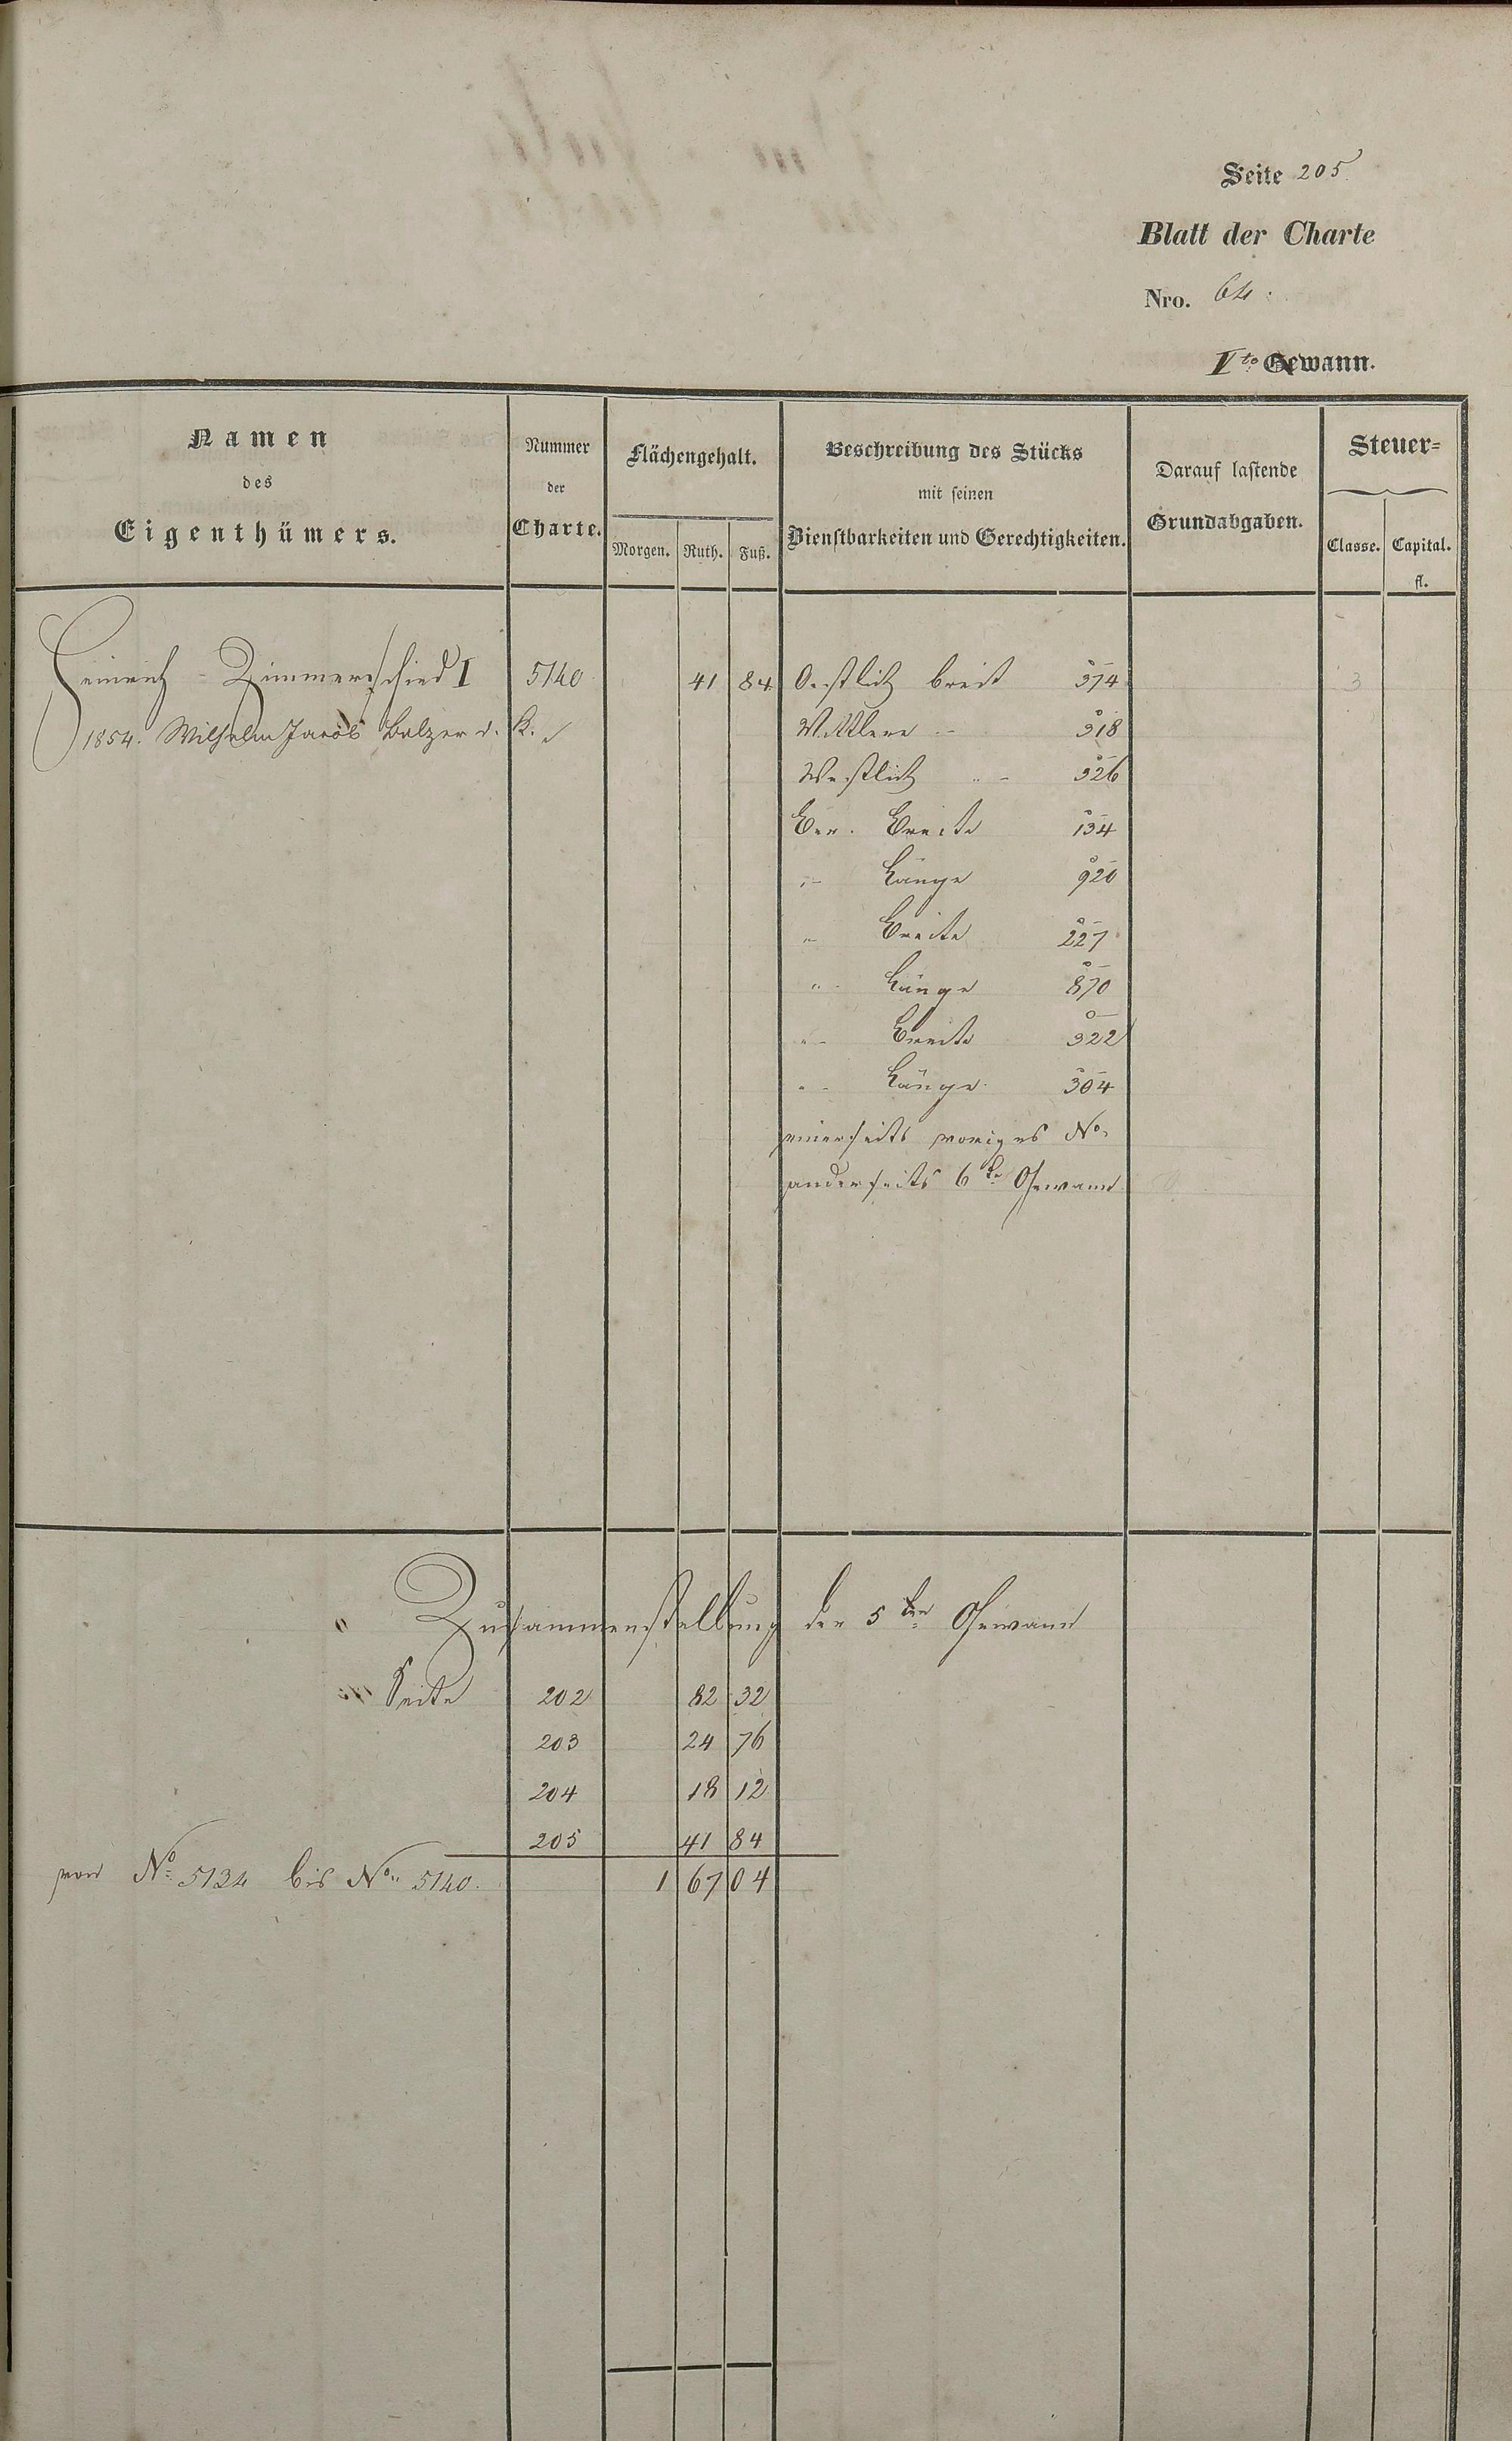 Seite 205.
Blatt der Charte
Nro. 64.
Vte Gewann.
Namen des Eigenthümers.
Nummer der Charte.
Flächengehalt.
Morgen. Ruth. Fuß.
Beschreibung des Stücks mit seinen Dienstbarkeiten und Gerechtigkeiten.
Darauf lastende Grundabgaben.
Steuer=
Classe. Capital.
fl.
Heinrich Zimmerschied I 5140 41 84 Oestlich breit 374 3
1854. Wilhelm Jacob Balzer d. K. Mittlere " 318
Westlich " 326
Ber. Breite 134
" Länge 920
" Breite 227
" Länge 870
" Breite 322
" Länge 304
einerseits voriges No.
anderseits 6te Gewann
Zusammenstellung der 5ten Gewann
Seite 202 82 32
203 24 76
204 18 12
205 41 84
von No. 5134 bis No. 5140. 1 67 04